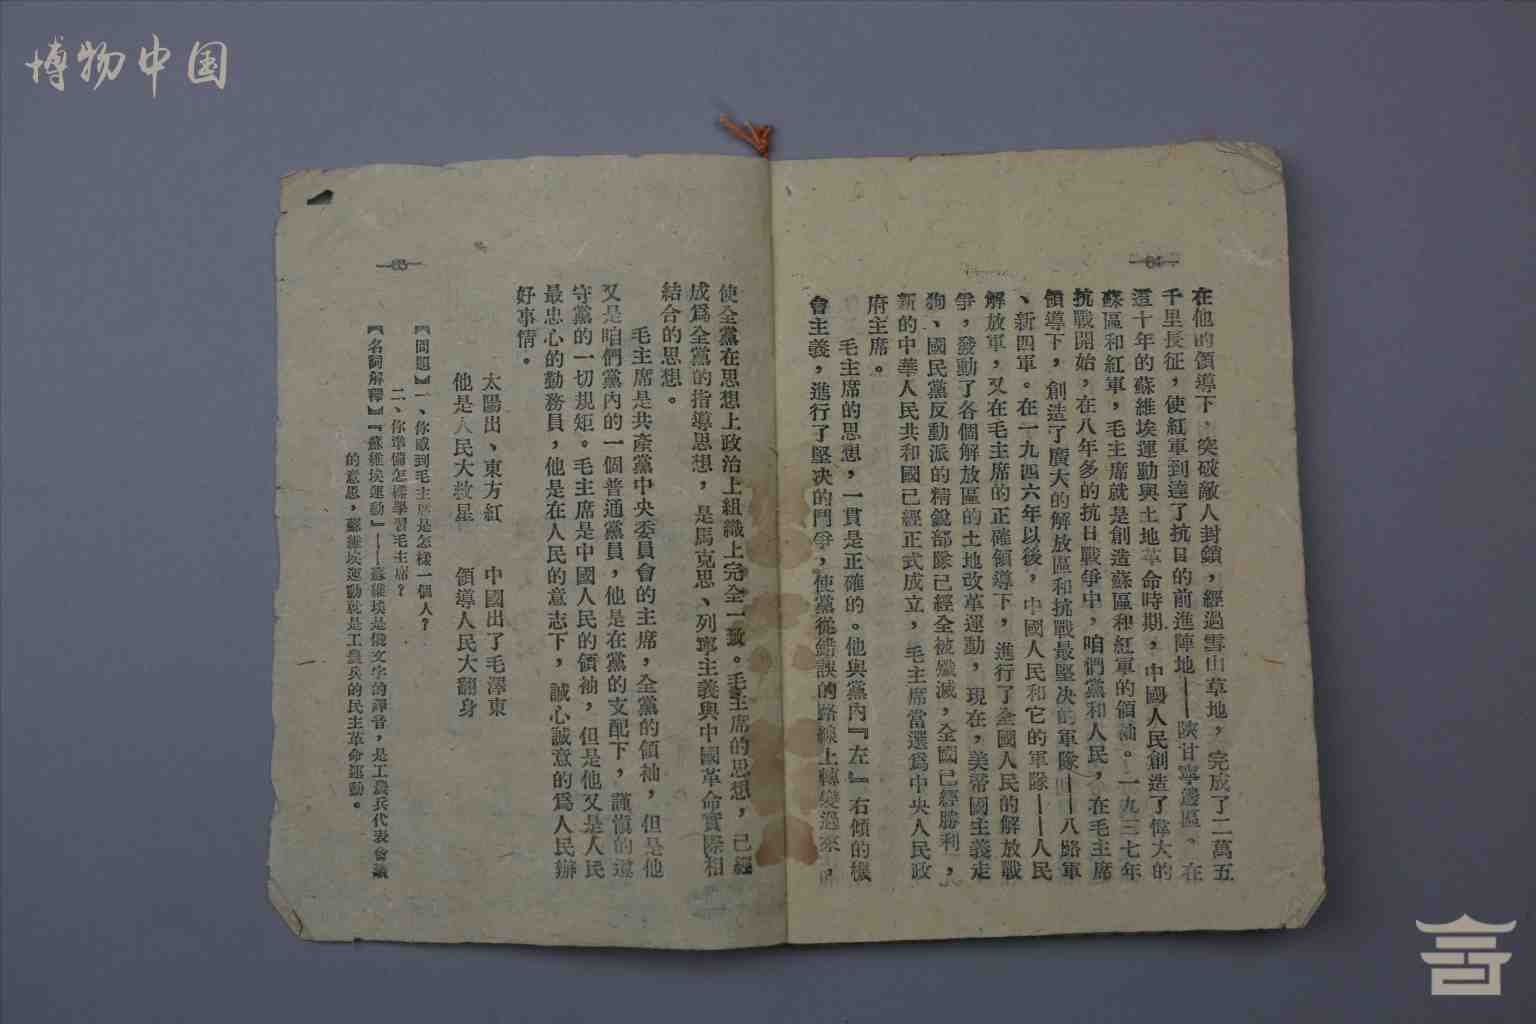 博物中国
64
在他的領導下，突破敵人封鎖，經過雪山草地，完成了二萬五
千里長征，使紅軍到達了抗日的前進陣地——陝甘寧邊區。在
這十年的蘇維埃運動與土地革命時期，中國人民創造了偉大的
蘇區和紅軍，毛主席就是創造蘇區和紅軍的領袖。一九三七年
抗戰開始，在八年多的抗日戰爭中，咱們黨和人民，在毛主席
領導下，創造了廣大的解放區和抗戰最堅决的軍隊——八路軍
、新四軍。在一九四六年以後，中國人民和它的軍隊——人民
解放軍，又在毛主席的正確領導下，進行了全國人民的解放戰
爭，發動了各個解放區的土地改革運動，現在，美帝國主義走
狗、國民黨反動派的精銳部隊已經全被殲滅，全國已經勝利，
新的中華人民共和國已經正式成立，毛主席當選爲中央人民政
府主席。
毛主席的思想，一貫是正確的。他與黨內『左』右傾的機
會主義，進行了堅决的鬥爭，使黨從錯誤的路線上轉變過來，
65
使全黨在思想上政治上組織上完全一致。毛主席的思想，已經
成爲全黨的指導思想，是馬克思、列寧主義與中國革命實際相
結合的思想。
毛主席是共產黨中央委員會的主席，全黨的領袖，但是他
又是咱們黨內的一個普通黨員，他是在黨的支配下，謹慎的遵
守黨的一切規矩。毛主席是中國人民的領袖，但是他又是人民
最忠心的勤務員，他是在人民的意志下，誠心誠意的爲人民辦
好事情。
太陽出、東方紅　中國出了毛澤東
他是人民大救星　領導人民大翻身
【問題】一、你感到毛主席是怎樣一個人？
二、你準備怎樣學習毛主席？
【名詞解釋】『蘇維埃運動』——蘇維埃是俄文字的譯音，是工農兵代表會議
的意思，蘇維埃運動就是工農兵的民主革命運動。